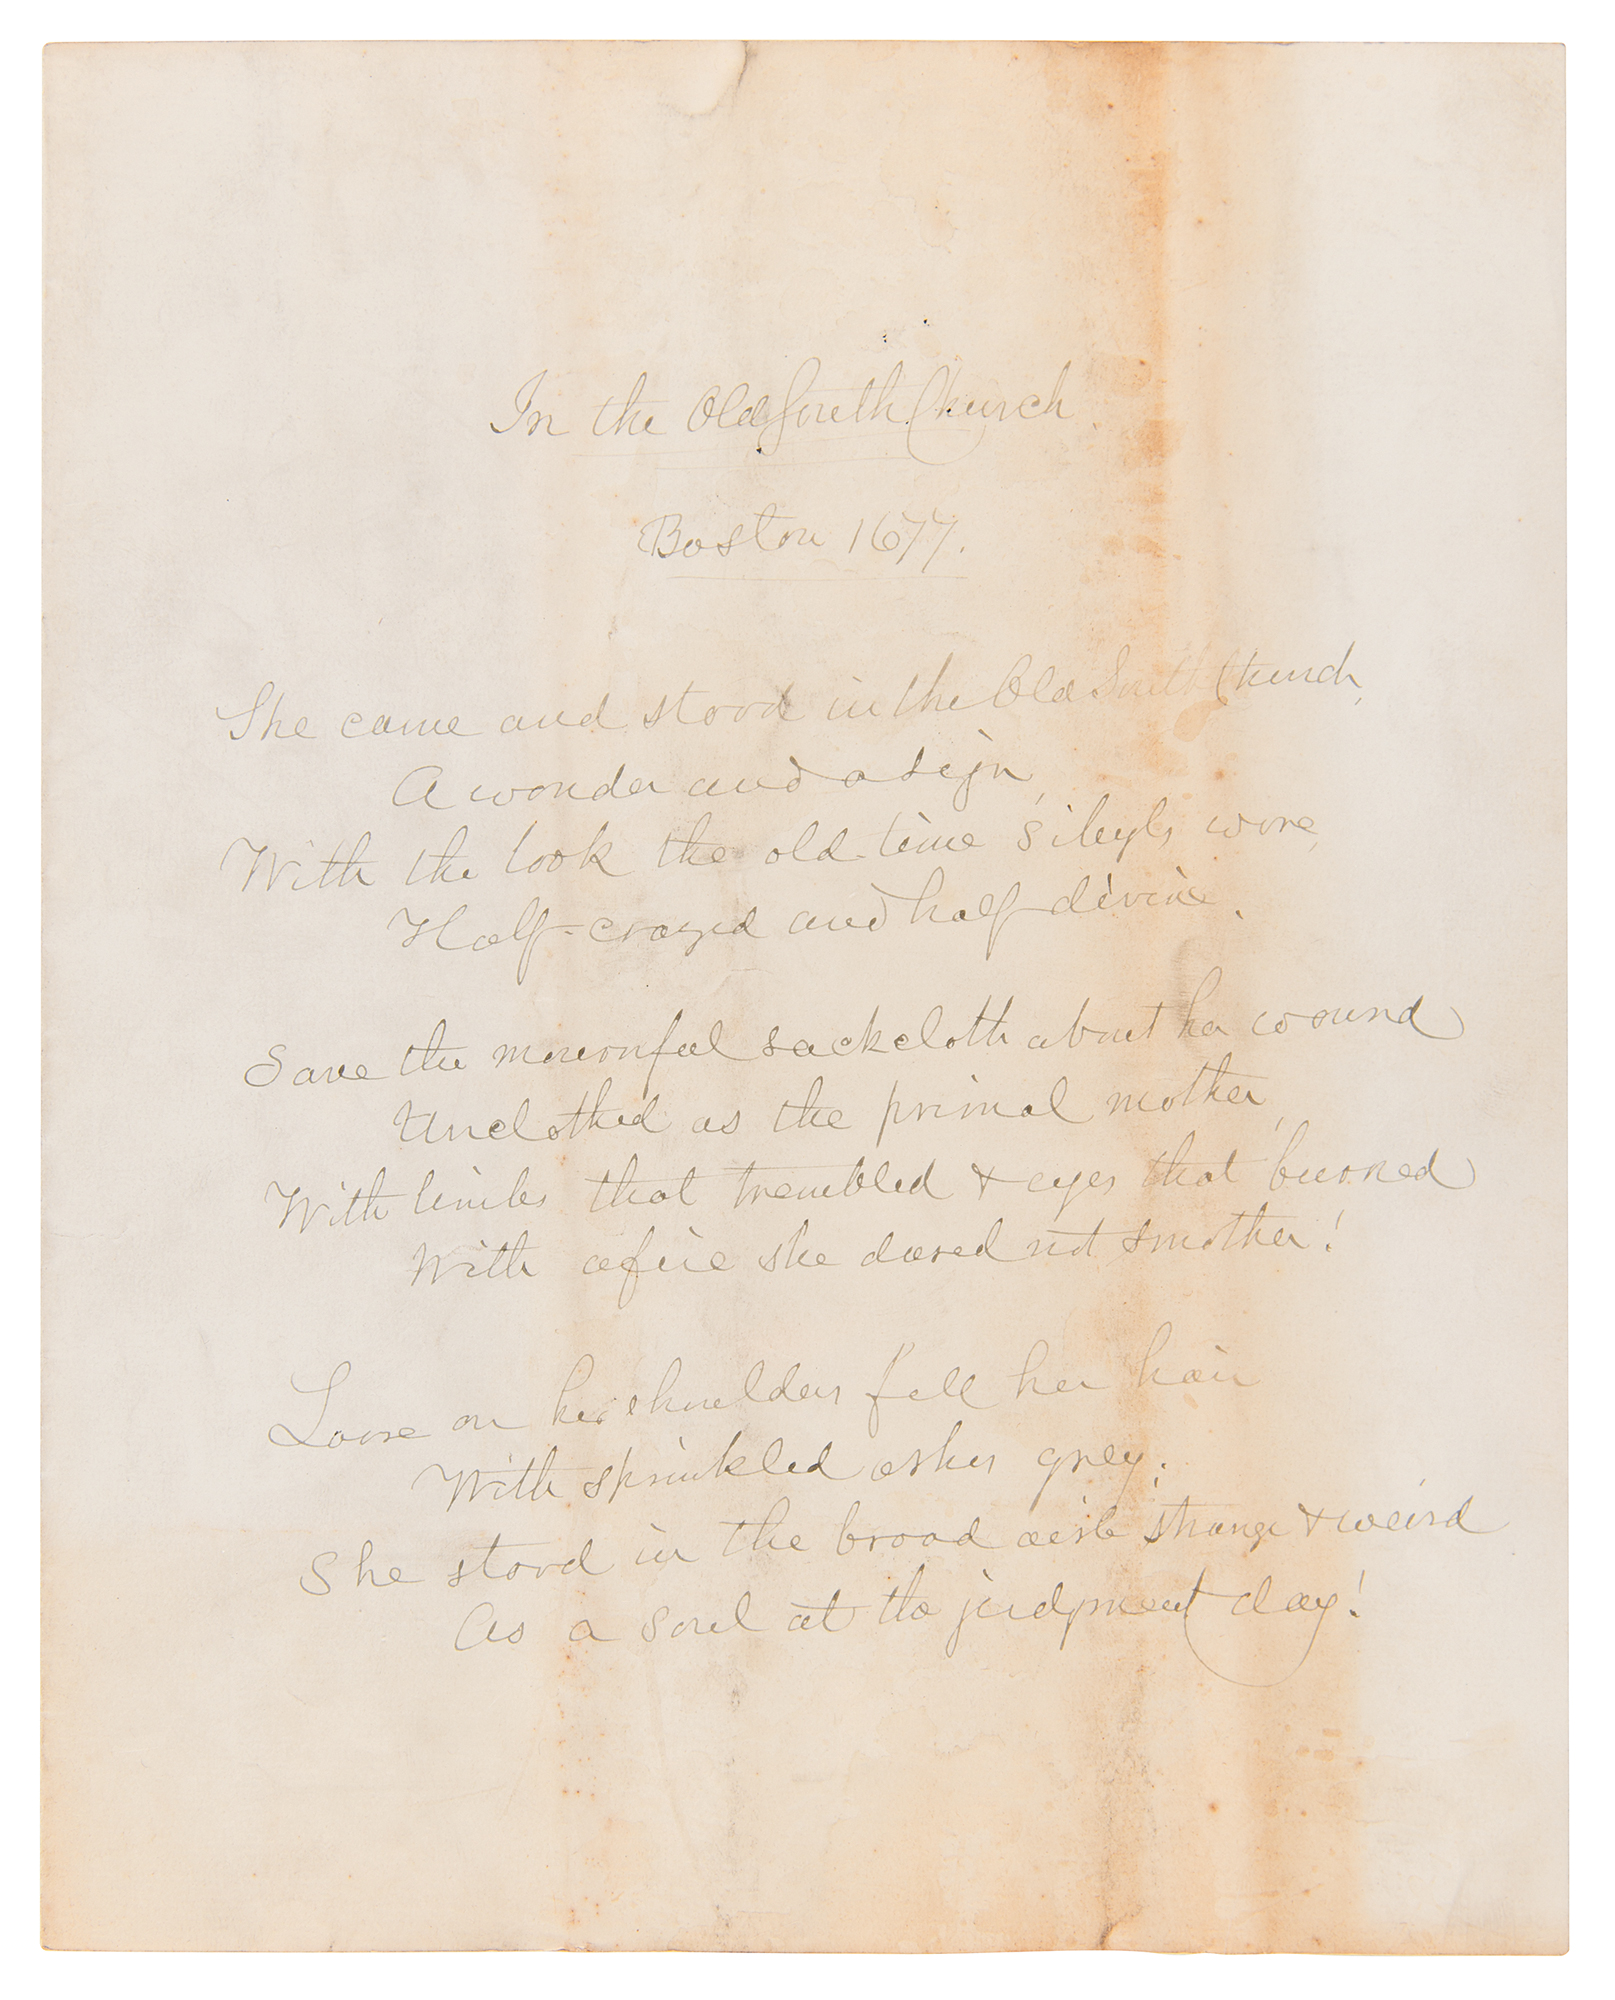 In the Old South Church
Boston 1677.
She came and stood in the Old South Church,
A wonder and a sign,
With the look the old-time sibyls wore,
Half-crazed and half divine.
Save the mournful sackcloth about her wound
Unclothed as the primal mother,
With limbs that trembled & eyes that burned
With a fire she dared not smother!
Loose on her shoulders fell her hair
With sprinkled ashes grey;
She stood in the broad aisle strange & weird
As a soul at the judgment day!